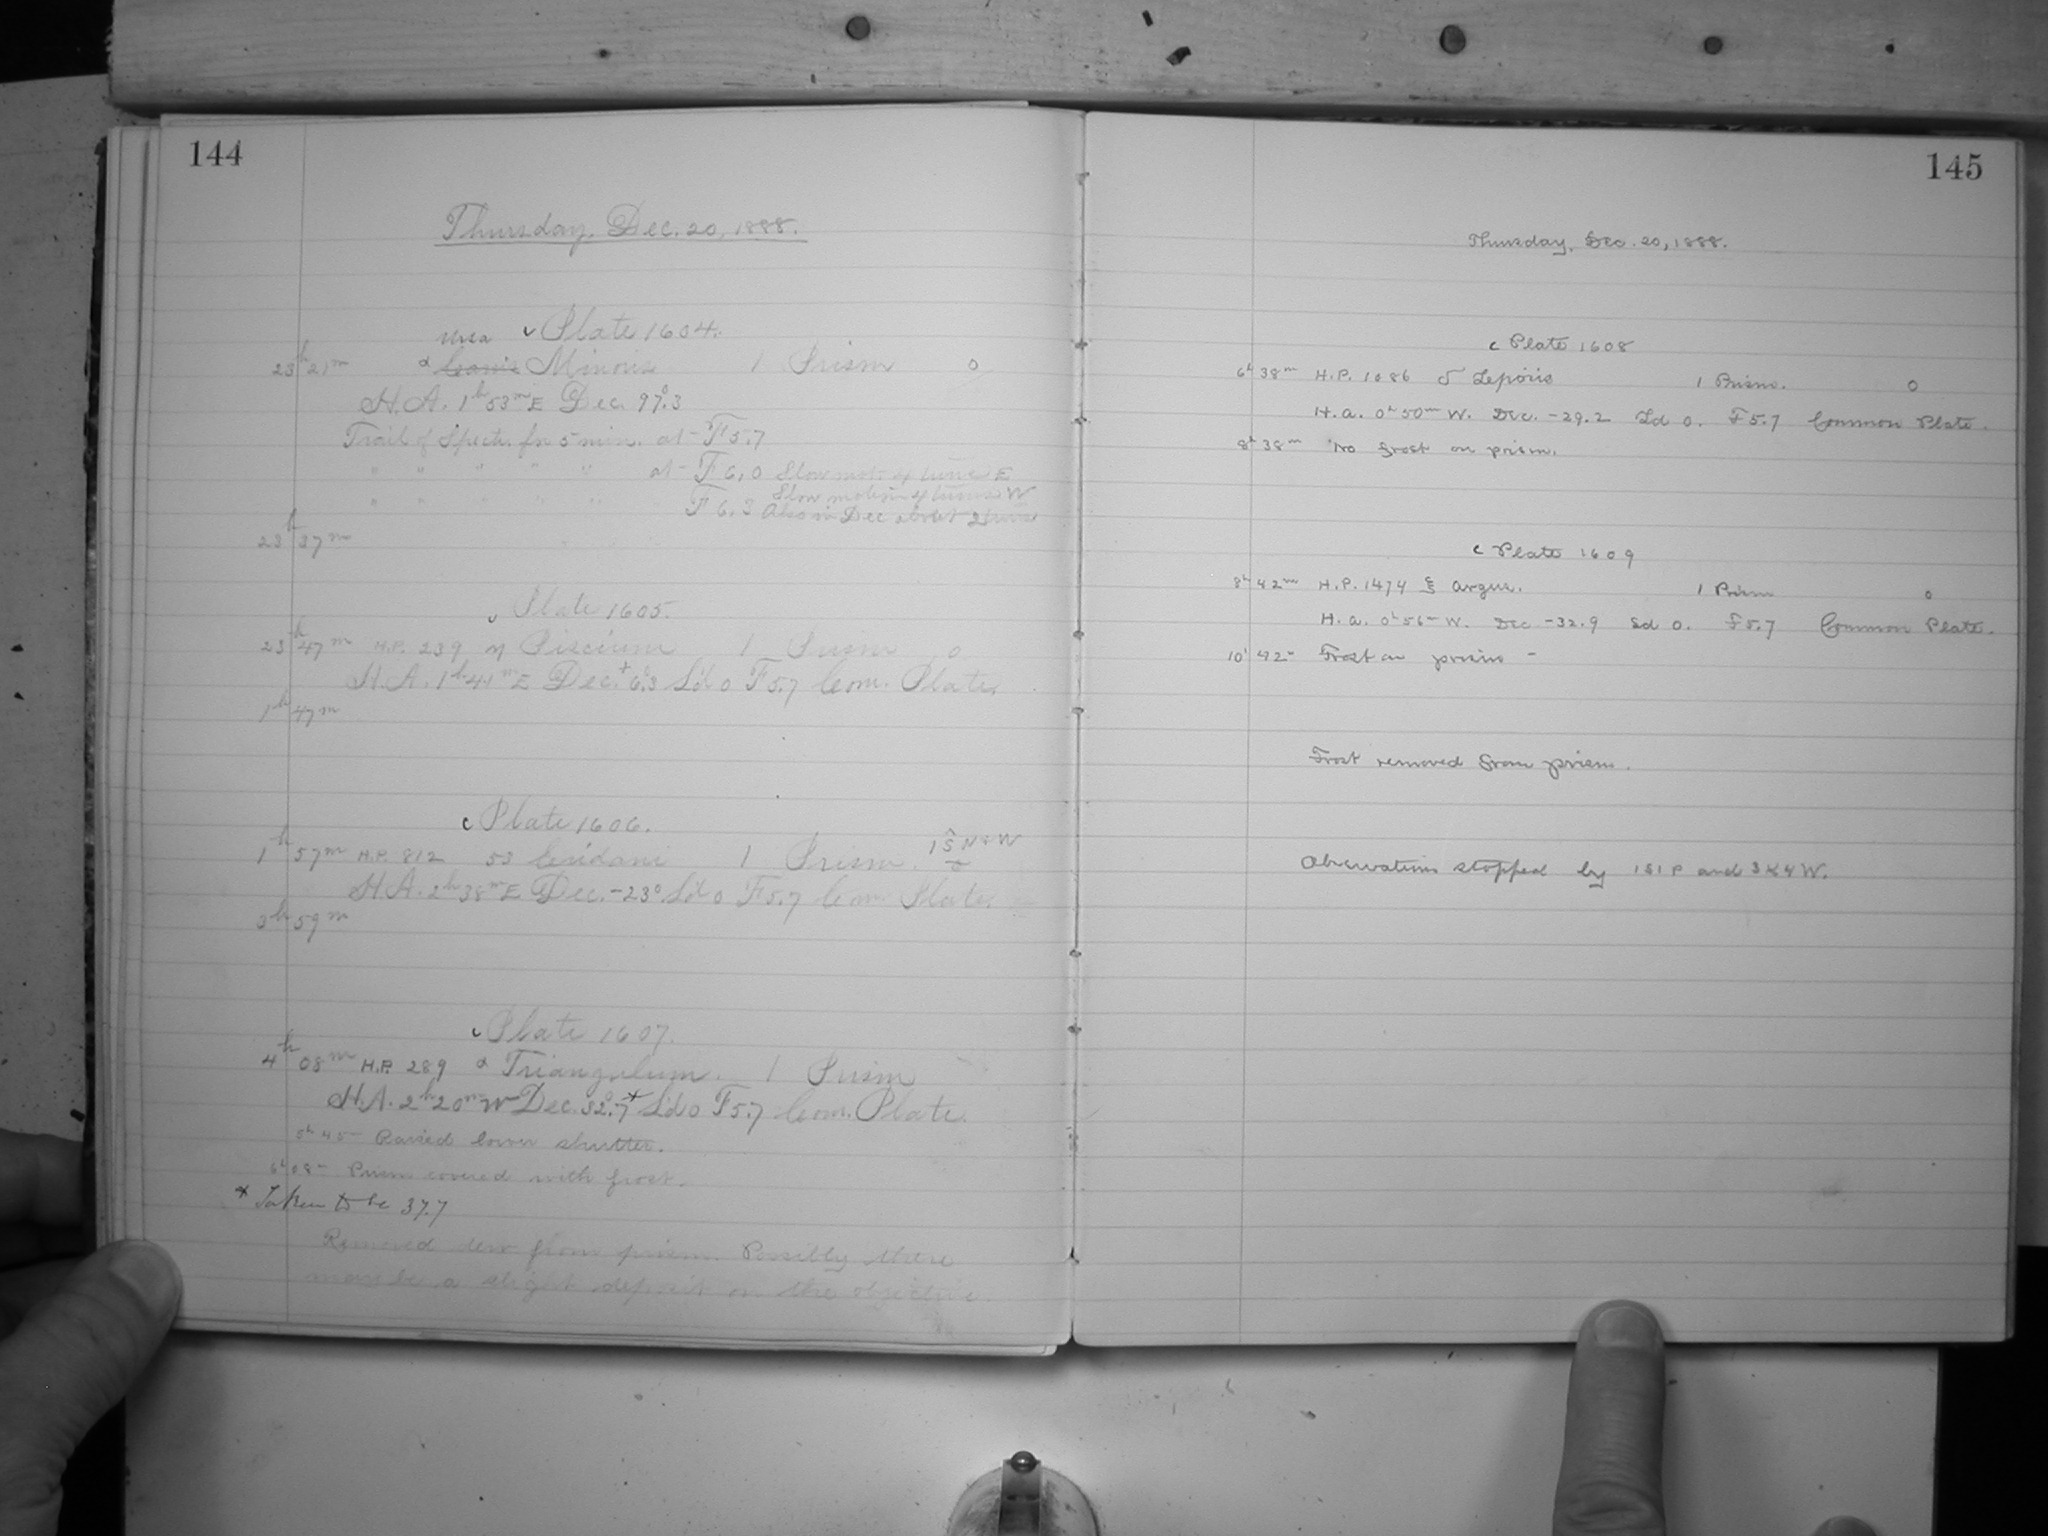 144
Thursday, Dec. 20, 1888.
c Plate 1604.
Ursa
23h 21m α Canis Minoris 1 Prism 0
H.A. 1h 53m E Dec. 97°.3
Trail of Spect. for 5 min. at F 5.7
" " " " " at F 6.0 Slow mot. 4 turns E
" " " " " F 6.3 Slow motion 4 turns W
Also in Dec about 2 turns
23h 37m
c Plate 1605.
23h 47m H.P. 239 η Piscium 1 Prism 0
H.A. 1h 41m E Dec. +6°.3 Sd 0 F 5.7 Com. Plate.
1h 47m
c Plate 1606.
1h 57m H.P. 812 53 Eridani 1 Prism. 1 S N & W
0
H.A. 2h 38m E Dec. -23° Sd 0 F 5.7 Com. Plate.
3h 59m
c Plate 1607.
4h 08m H.P. 289 α Triangulum. 1 Prism
H.A. 2h 20m W Dec. 32°.7* Sd 0 F 5.7 Com. Plate.
5h 45m Raised lower shutter.
6h 08m Prism covered with frost.
* Taken to be 37.7
Removed dew from prism. Possibly there
may be a slight deposit on the objective.
145
Thursday, Dec. 20, 1888.
c Plate 1608
6h 38m H.P. 1086 δ Leporis 1 Prism. 0
H.a. 0h 50m W. Dec. -29.2 Sd 0. F 5.7 Common Plate.
8h 38m No frost on prism.
c Plate 1609
8h 42m H.P. 1474 ξ Argus. 1 Prism 0
H.a. 0h 56m W. Dec -32.9 Sd 0. F 5.7 Common Plate.
10h 42m Frost on prism -
Frost removed from prism.
Observations stopped by 1 S 1 P and 3 K 4 W.